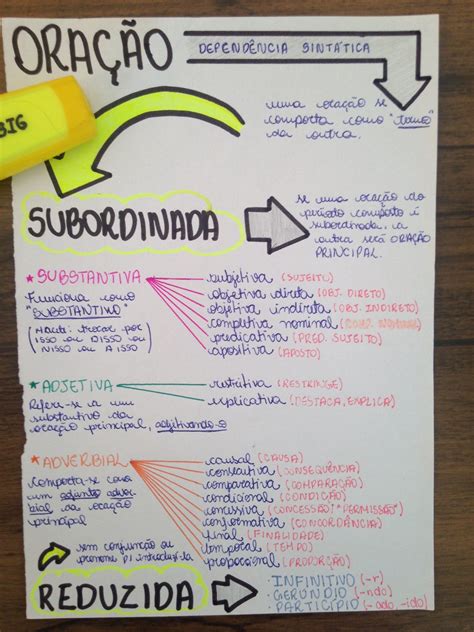 ORAÇÃO
DEPENDÊNCIA SINTÁTICA
BIG
uma oração se
comporta como "termo"
da outra.
SUBORDINADA
se uma oração do
período composto é
subordinada, a
outra será ORAÇÃO
PRINCIPAL.
*SUBSTANTIVA
Funciona como
"SUBSTANTIVO"
trocar por
ISSO ou DISSO ou
NISSO ou A ISSO)
subjetiva (SUJEITO)
objetiva direta (OBJ. DIRETO)
objetiva indireta (OBJ. INDIRETO)
completiva nominal
predicativa (PRED. SUJEITO)
apositiva (APOSTO)
*ADJETIVA
Refere-se a um
substantivo da
oração principal, adjetivando-o
restritiva (RESTRINGE)
explicativa (DESTACA, EXPLICA)
*ADVERBIAL
Comporta-se como
um adjunto adver-
bial da oração
principal
causal (CAUSA)
consecutiva (CONSEQUÊNCIA)
comparativa (COMPARAÇÃO)
condicional (CONDIÇÃO)
concessiva (CONCESSÃO/"PERMISSÃO")
conformativa (CONCORDÂNCIA)
final (FINALIDADE)
temporal (TEMPO)
proporcional (PROPORÇÃO)
sem conjunção ou
pronome introduzida
REDUZIDA
· INFINITIVO (-r)
· GERÚNDIO (-ndo)
· PARTICÍPIO (-ado, -ido)